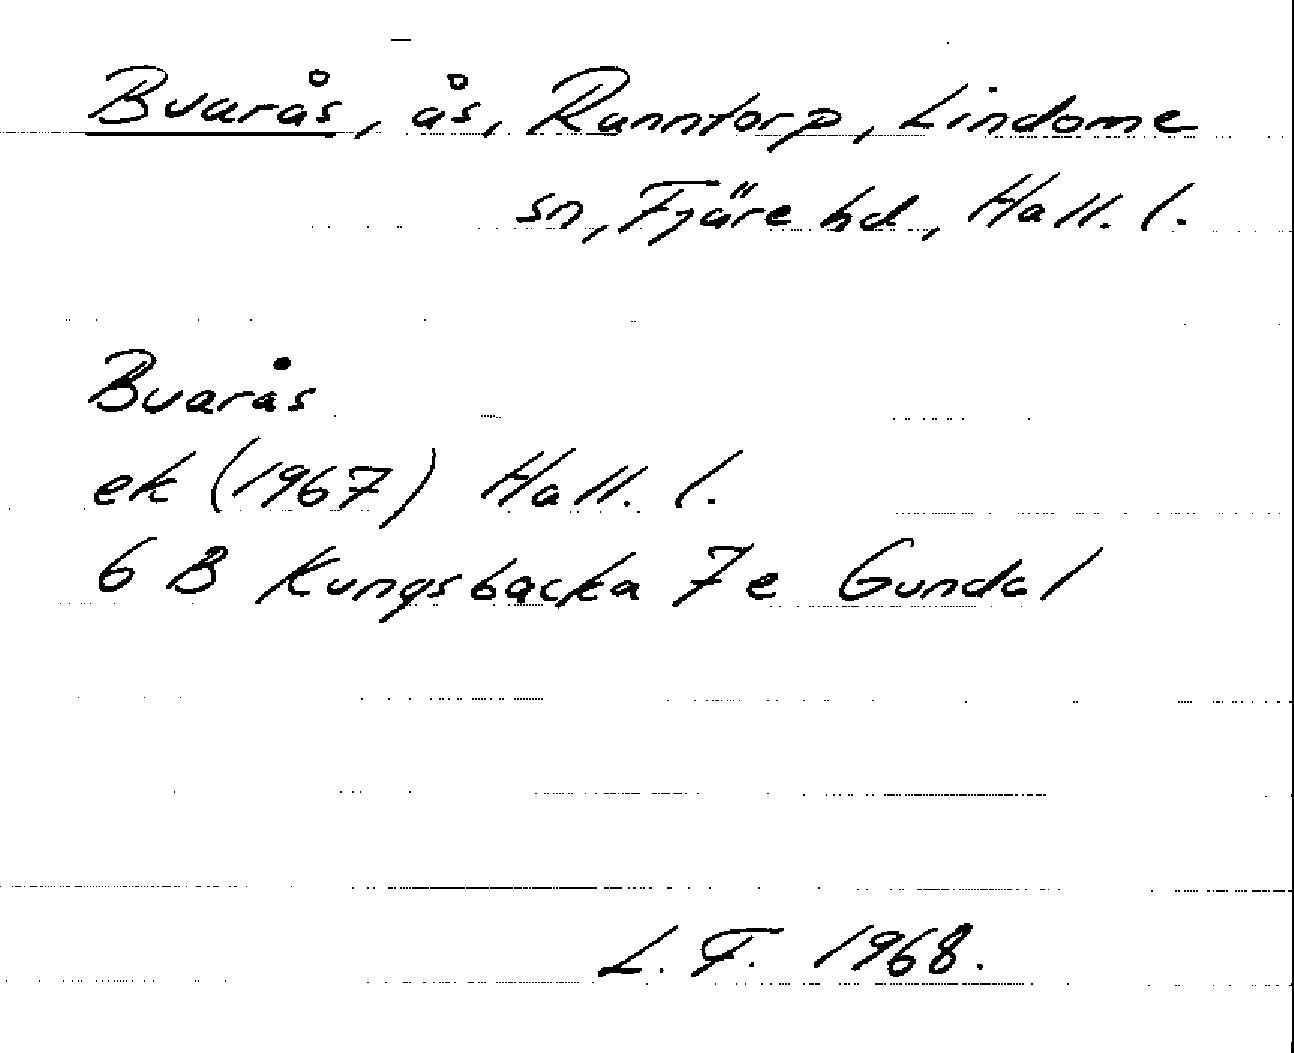 Buarås, ås, Ranntorp, Lindome
sn, Fjäre hd., Hall. l.
Buarås
ek (1967) Hall. l.
6 B Kungsbacka 7 e Gundal
L. F. 1968.